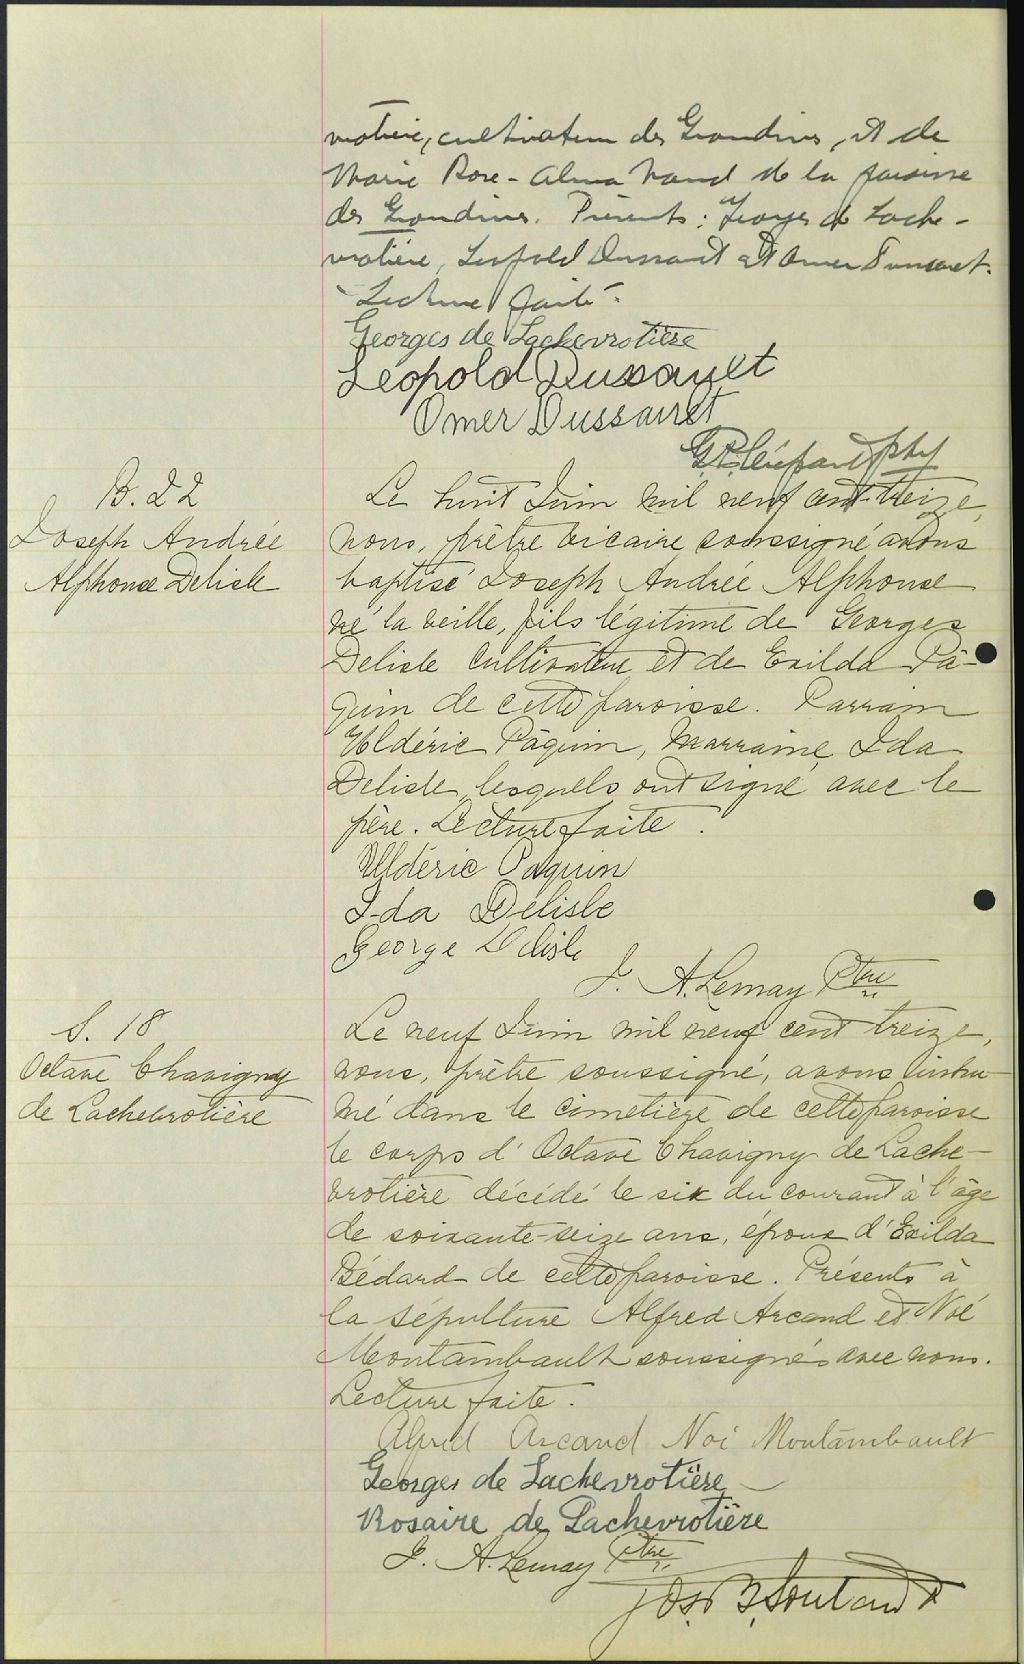 vrotière, cultivateur des Grondines, et de
Marie Rose-Alma Naud de la paroisse
des Grondines. Présents : Georges de Lache-
vrotière, Léopold Dussault et Omer Dussault.
Lecture faite.
Georges de Lachevrotière
Léopold Dussault
Omer Dussault
ptre
B. 22
Joseph Andrée
Alphonse Delisle
Le huit Juin mil neuf cent-treize,
nous, prêtre vicaire soussigné avons
baptisé Joseph Andrée Alphonse
né la veille, fils légitime de Georges
Delisle cultivateur et de Exilda Pâ-
quin de cette paroisse. Parrain
Uldéric Pâquin, Marraine, Ida
Delisle, lesquels ont signé avec le
père. Lecture faite.
Uldéric Paquin
Ida Delisle
George Delisle
J. A. Lemay Ptre
S. 18
Octave Chavigny
de Lachevrotière
Le neuf Juin mil neuf cent treize,
nous, prêtre soussigné, avons inhu-
mé dans le cimetière de cette paroisse
le corps d'Octave Chavigny de Lache-
vrotière décédé le six du courant à l'âge
de soixante-seize ans, époux d'Exilda
Bédard de cette paroisse. Présents à
la sépulture Alfred Arcand et Noé
Montambault soussignés avec nous.
Lecture faite.
Alfred Arcand Noé Montambault
Georges de Lachevrotière
Rosaire de Lachevrotière
J. A. Lemay Ptre
Jos. B. Soulard